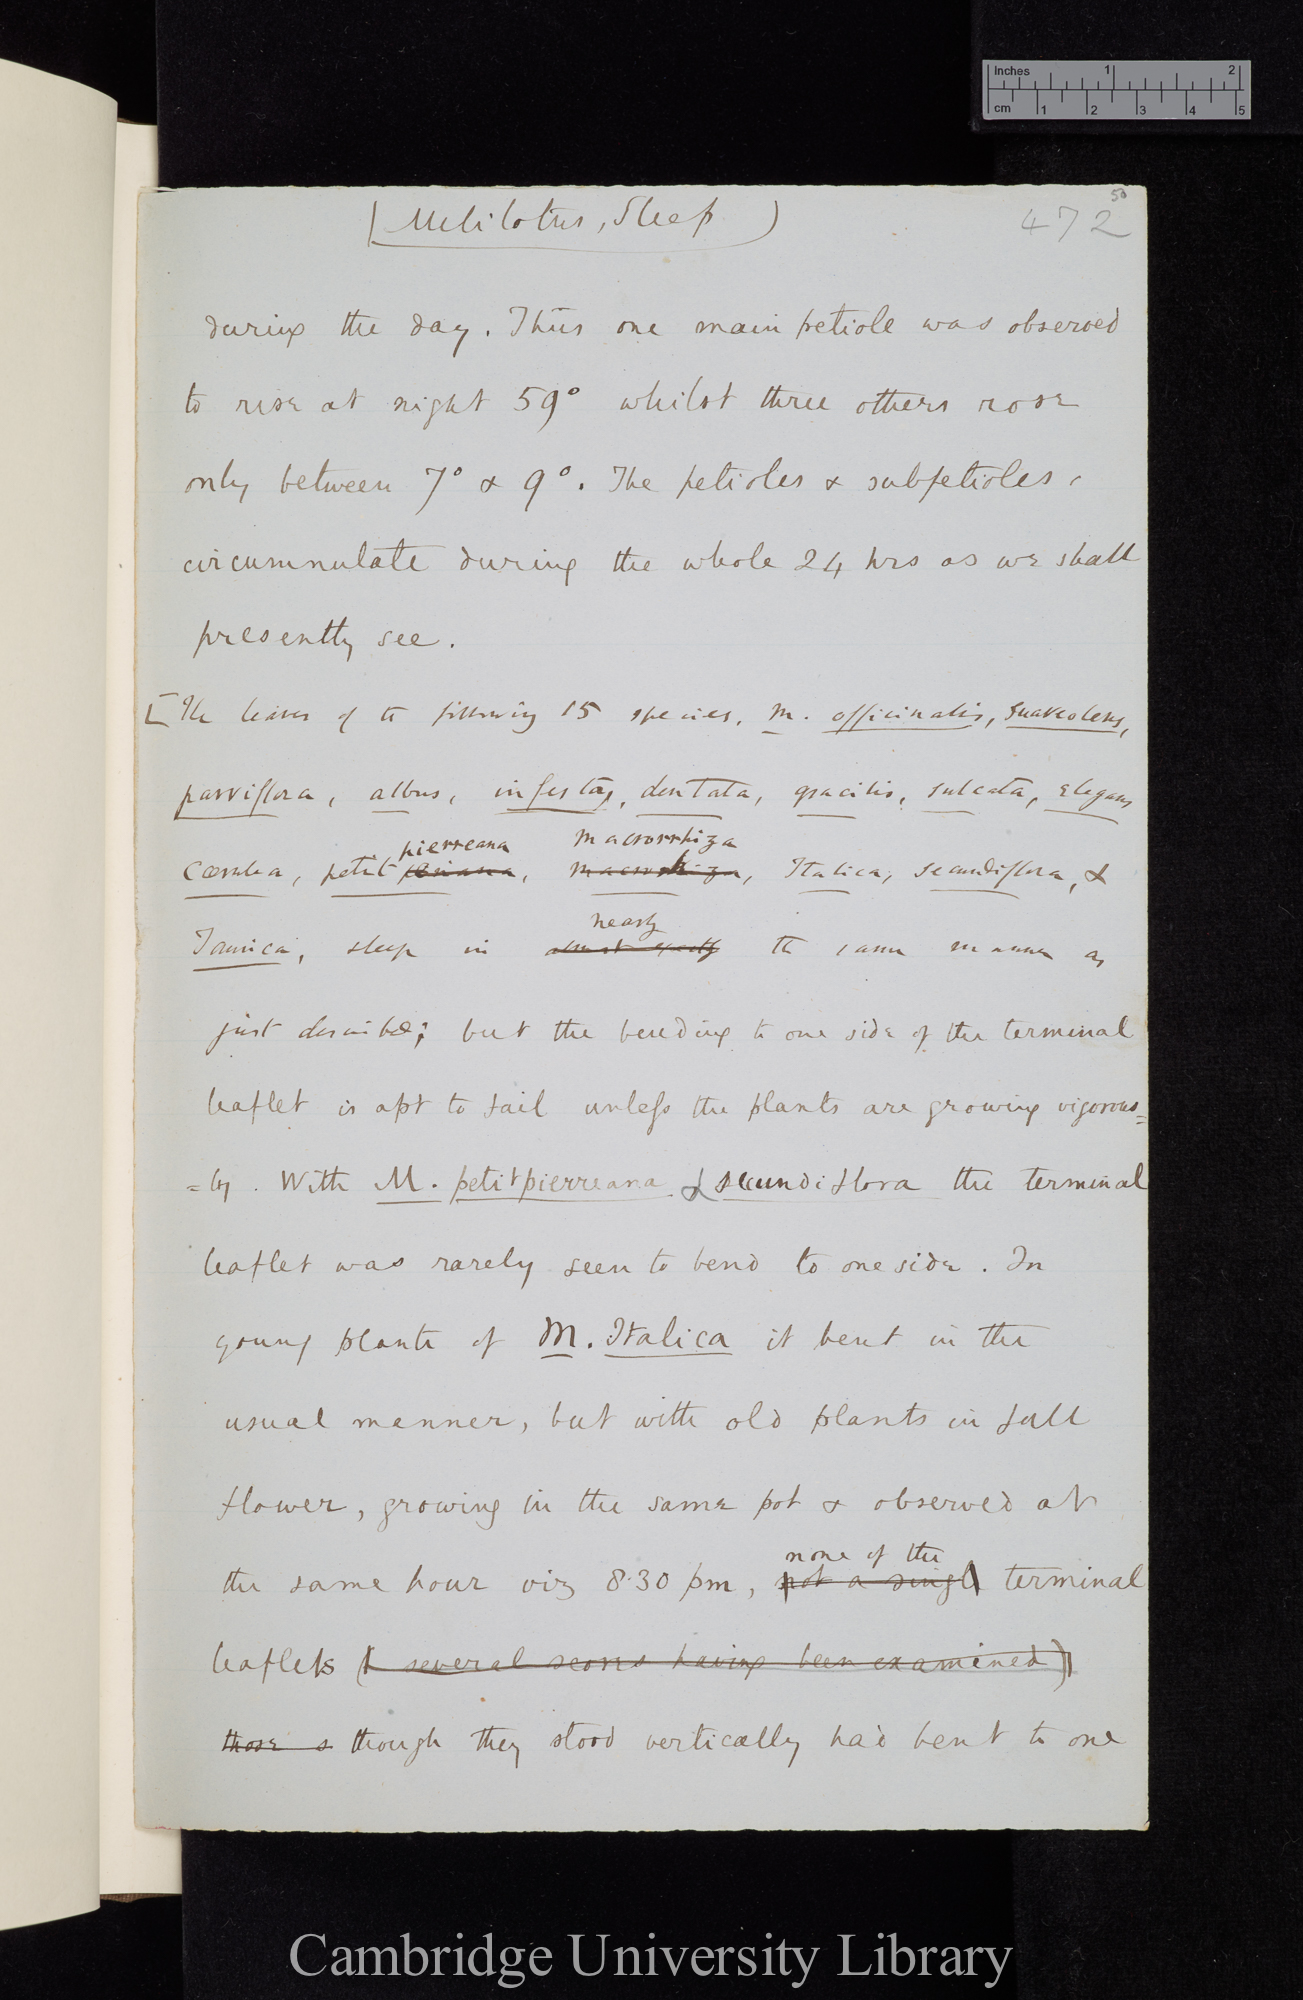 Inches 1 2
cm 1 2 3 4 5
50
(Melilotus, Sleep) 472
during the day. Thus one main petiole was observed
to rise at night 59° whilst three others rose
only between 7° & 9°. The petioles & subpetioles
circumnutate during the whole 24 hrs as we shall
presently see.
[The leaves of the following 15 species, M. officinalis, suaveolens,
parviflora, albus, infesta, dentata, gracilis, sulcata, elegans
pierreana macrorrhiza
cœrulea, petit , macrorhiza, Italica, secundiflora, &
nearly
Taurica, sleep in almost exactly the same manner as
just described; but the bending to one side of the terminal
leaflet is apt to fail unless the plants are growing vigorous=
=ly. With M. petitpierreana & secundiflora the terminal
leaflet was rarely seen to bend to one side. In
young plants of M. Italica it bent in the
usual manner, but with old plants in full
flower, growing in the same pot & observed at
none of the
the same hour viz 8.30 pm, not a single terminal
leaflets (& several scores having been examined)
those s though they stood vertically had bent to one
Cambridge University Library